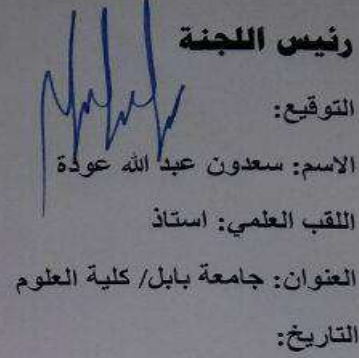 رئيس اللجنة
التوقيع:
الاسم: سعدون عبد الله عودة
اللقب العلمي: استاذ
العنوان: جامعة بابل/ كلية العلوم
التاريخ: